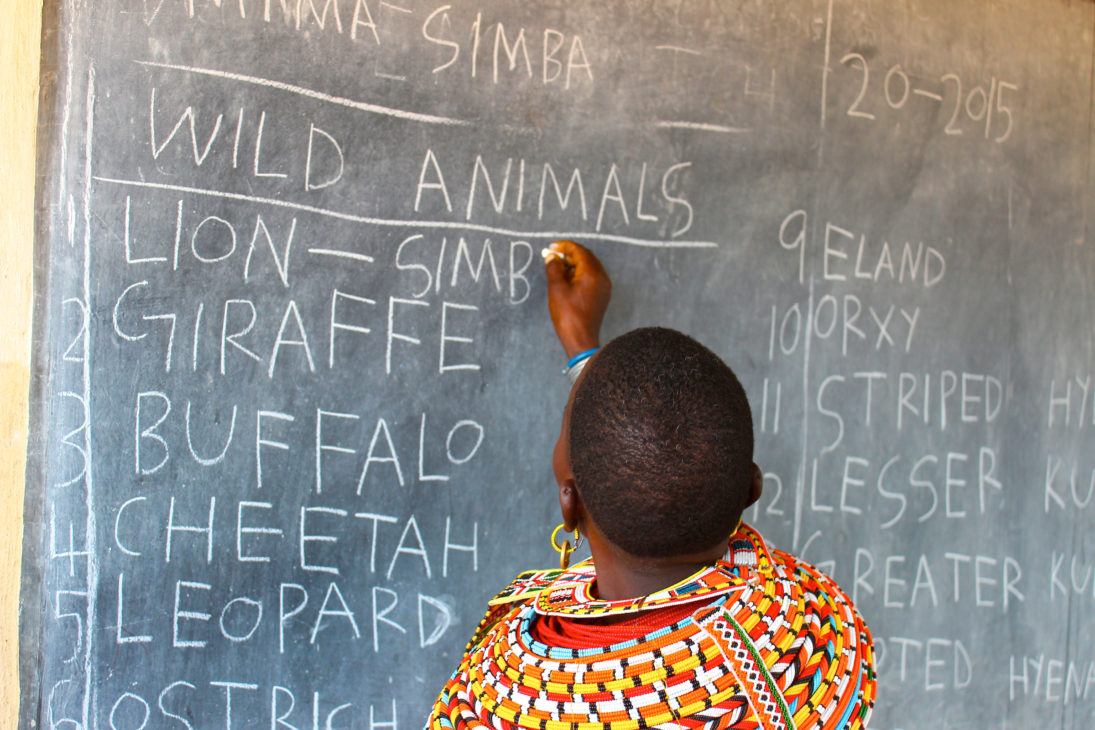 MAMA-SIMBA
20-2015
WILD ANIMALS
LION - SIMB
2 GIRAFFE
3 BUFFALO
4 CHEETAH
5 LEOPARD
6 OSTRICH
9 ELAND
10 ORXY
11 STRIPED HY
12 LESSER KU
GREATER KU
HYENA